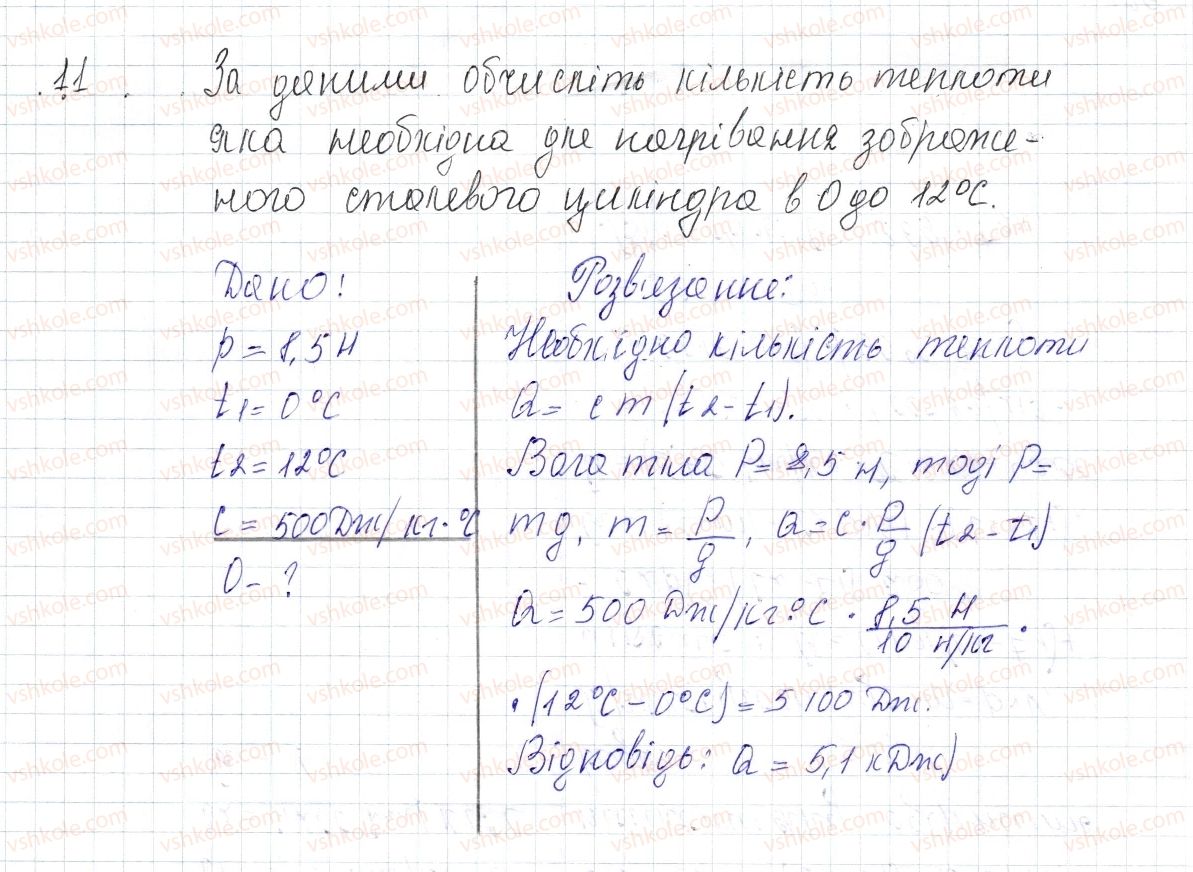 11. За даними обчисліть кількість теплоти
яка необхідна для нагрівання зображе-
ного сталевого циліндра в 0 до 12°C.
Дано!
p = 8,5 Н
t1 = 0°C
t2 = 12°C
C = 500 Дж/кг·°C
Q - ?
Розв'язання:
Необхідно кількість теплоти
Q = cm(t2-t1).
Вага тіла P = 8,5 н, тоді P =
mg, m = P/g, Q = c · P/g (t2-t1)
Q = 500 Дж/кг°C · 8,5 Н / 10 н/кг ·
· (12°C - 0°C) = 5 100 Дж.
Відповідь: Q = 5,1 кДж)
vshkole.com